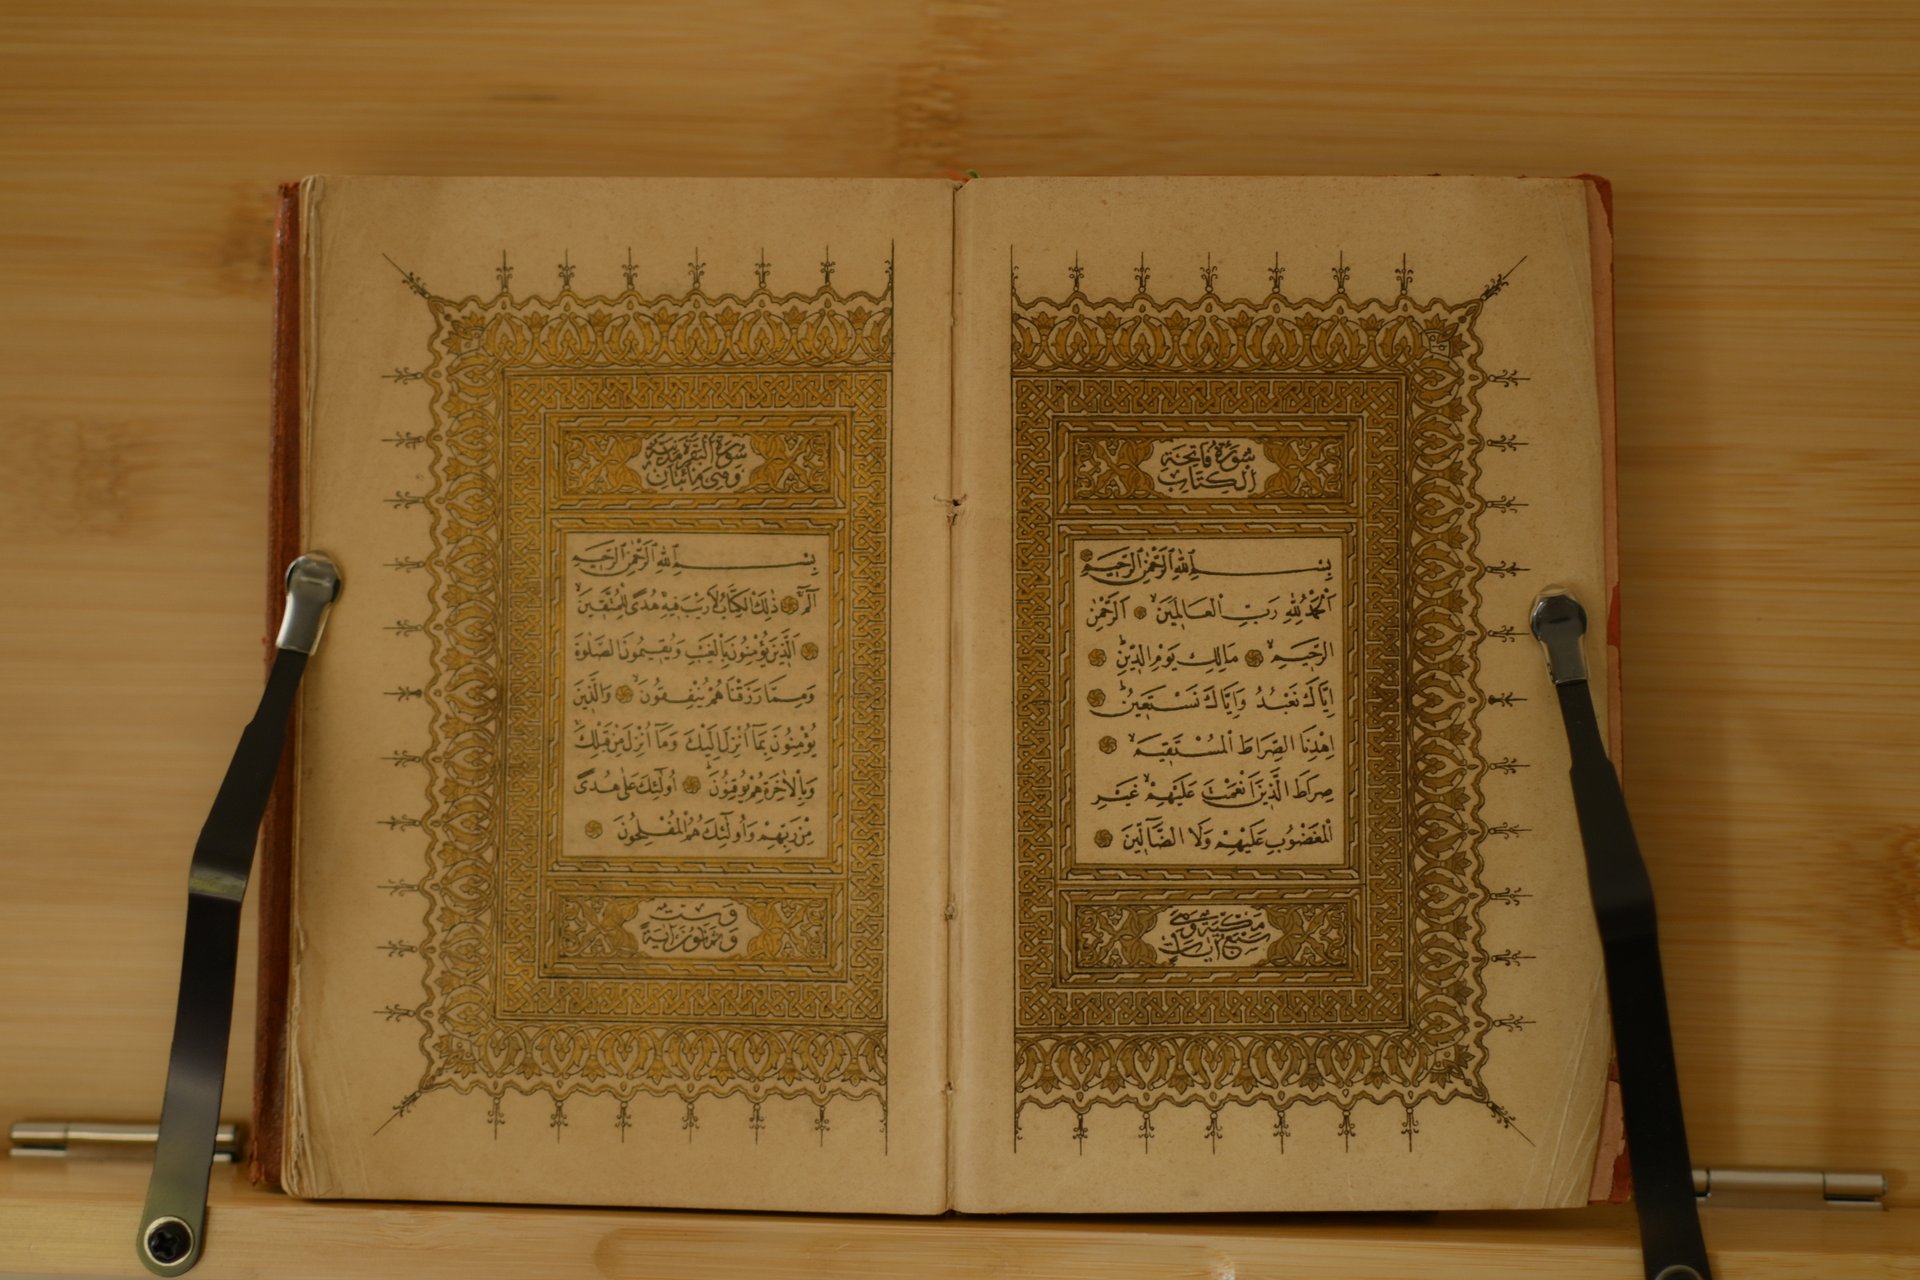 سُورَةُ فَاتِحَةِ
الْكِتَابِ
بِسْمِ اللهِ الرَّحْمٰنِ الرَّحِيمِ
اَلْحَمْدُ لِلّٰهِ رَبِّ الْعَالَمِينَ اَلرَّحْمٰنِ
الرَّحِيمِ مَالِكِ يَوْمِ الدِّينِ
اِيَّاكَ نَعْبُدُ وَاِيَّاكَ نَسْتَعِينُ
اِهْدِنَا الصِّرَاطَ الْمُسْتَقِيمَ
صِرَاطَ الَّذِينَ اَنْعَمْتَ عَلَيْهِمْ غَيْرِ
الْمَغْضُوبِ عَلَيْهِمْ وَلَا الضَّالِّينَ
مَكِّيَّةٌ وَهِيَ
سَبْعُ آيَاتٍ
سُورَةُ الْبَقَرَةِ مَدَنِيَّةٌ
وَهِيَ مِائَتَانِ
بِسْمِ اللهِ الرَّحْمٰنِ الرَّحِيمِ
الٓمٓ ذٰلِكَ الْكِتَابُ لَا رَيْبَ فِيهِ هُدًى لِلْمُتَّقِينَ
اَلَّذِينَ يُؤْمِنُونَ بِالْغَيْبِ وَيُقِيمُونَ الصَّلٰوةَ
وَمِمَّا رَزَقْنَاهُمْ يُنْفِقُونَ وَالَّذِينَ
يُؤْمِنُونَ بِمَٓا اُنْزِلَ اِلَيْكَ وَمَٓا اُنْزِلَ مِنْ قَبْلِكَ
وَبِالْاٰخِرَةِ هُمْ يُوقِنُونَ اُولٰٓئِكَ عَلٰى هُدًى
مِنْ رَبِّهِمْ وَاُولٰٓئِكَ هُمُ الْمُفْلِحُونَ
وَسِتٌّ
وَثَمَانُونَ اٰيَةً